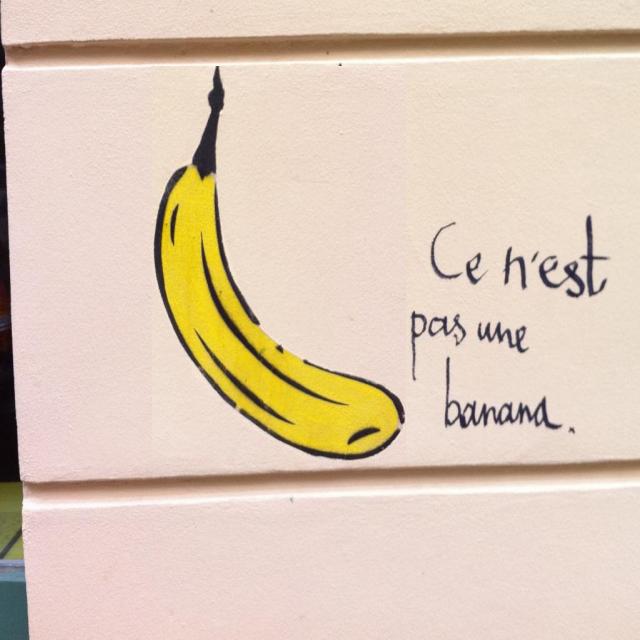 Ce n'est
pas une
banana.